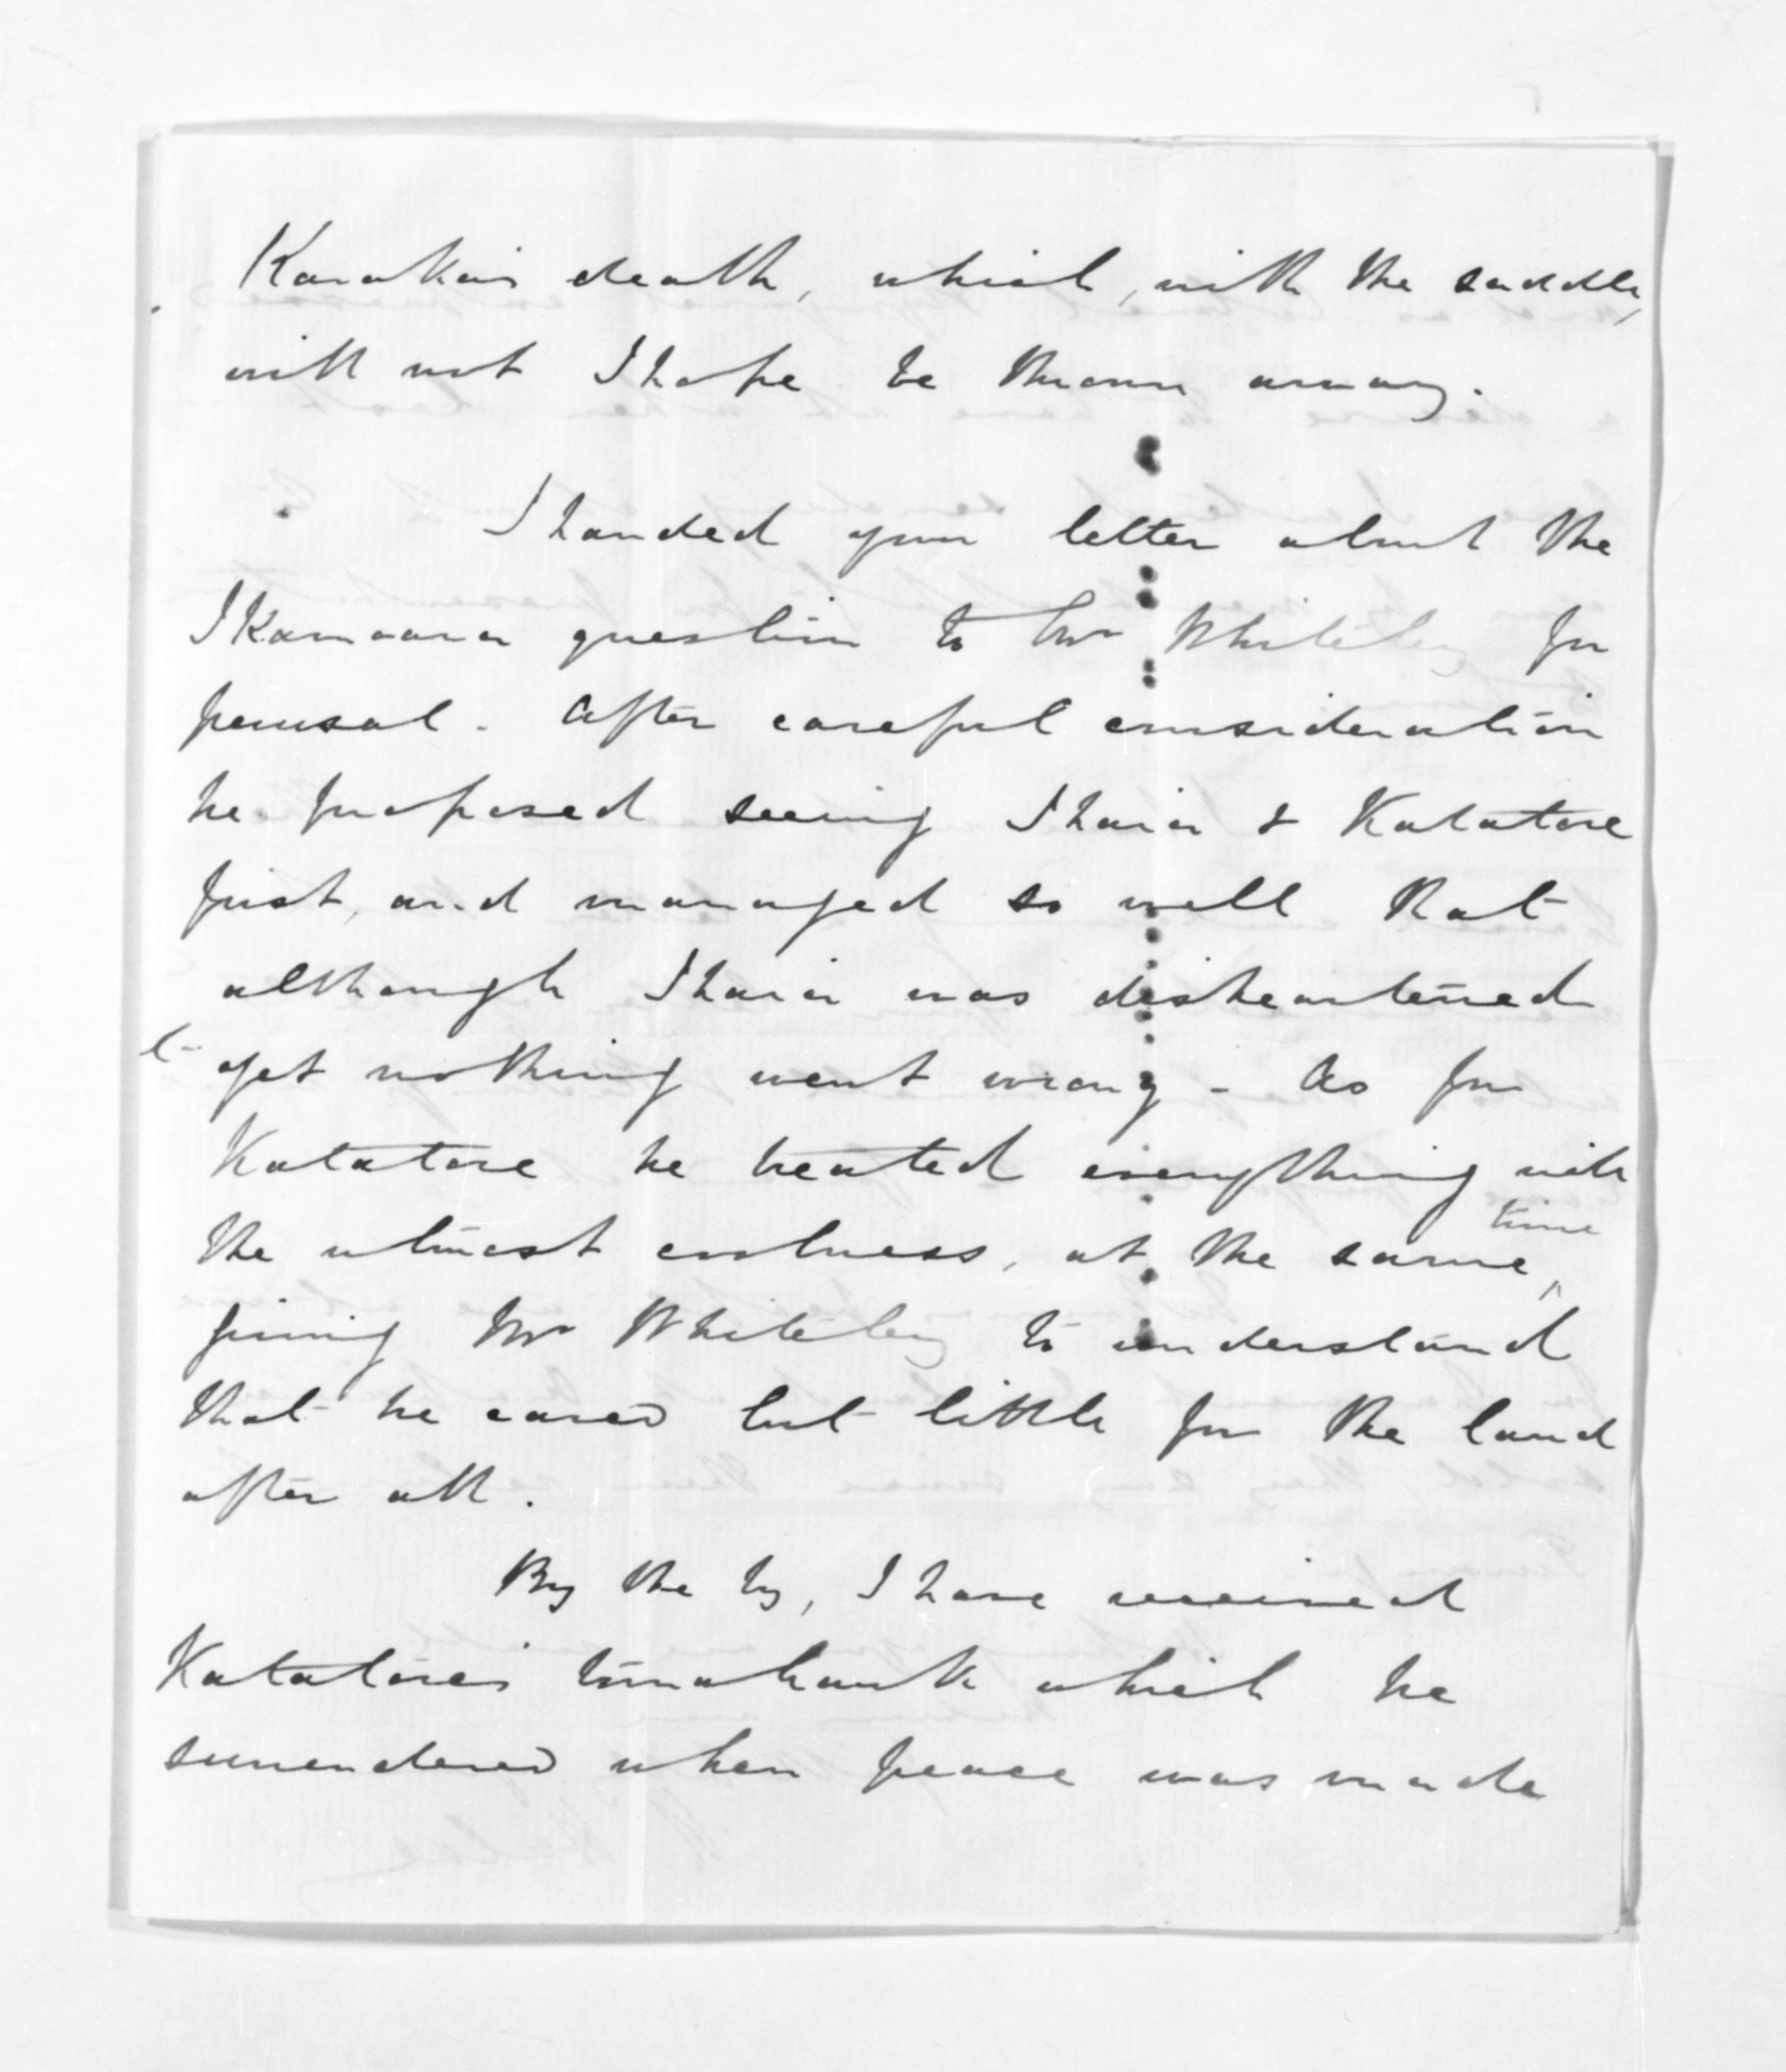 Karaka's death, which, with the saddle,
will not I hope be thrown away.
I handed your letter about the
Ikamoana question to Mr Whiteley for
perusal. After careful consideration
he proposed seeing Ihaia & Katatore
first, and managed so well that
although Ihaia was disheartened
yet nothing went wrong - As for
Katatore he treated everything with
the utmost coolness, at the same time
giving Mr Whiteley to understand
that he cared but little for the land
after all.
By the by, I have received
Katatore's tomahawk which he
surrendered when peace was made